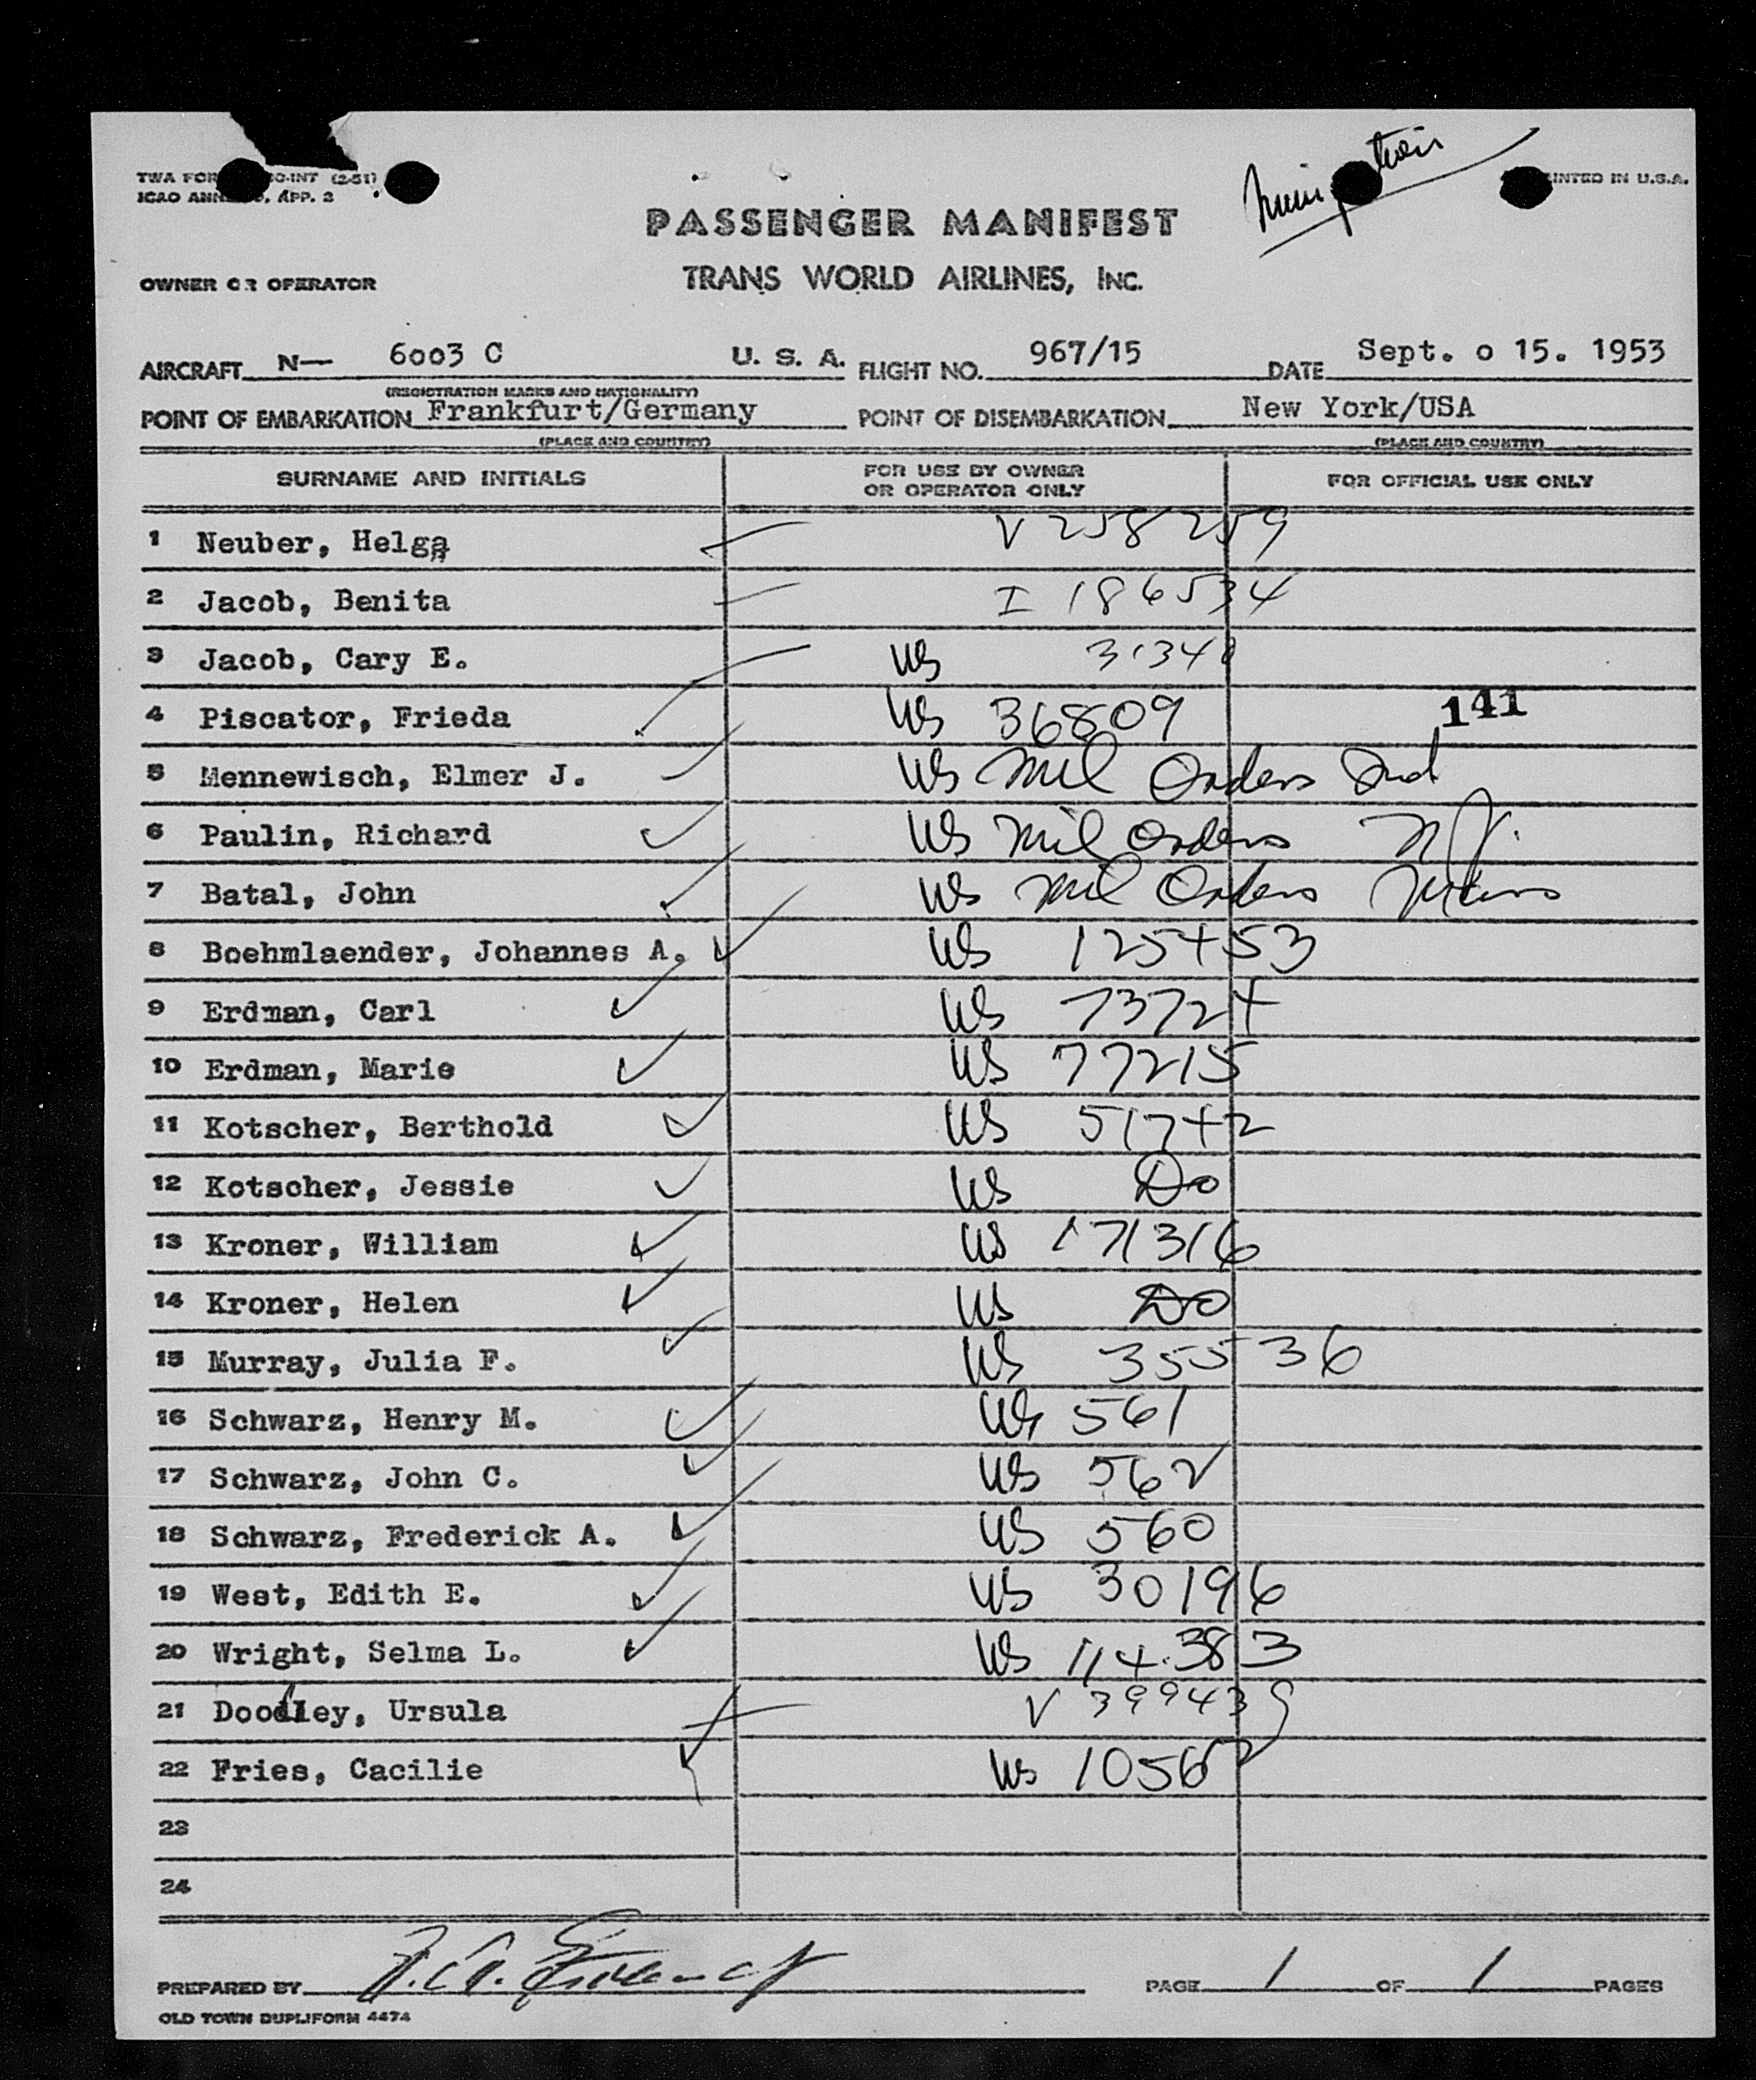 Immigration
TWA FOR O-INT (2-51)
ICAO ANN , APP. 2
INTED IN U.S.A.
PASSENGER MANIFEST
OWNER OR OPERATOR TRANS WORLD AIRLINES, INC.
AIRCRAFT N— 6003 C U. S. A. FLIGHT NO. 967/15 DATE Sept. o 15. 1953
(REGISTRATION MARKS AND NATIONALITY)
POINT OF EMBARKATION Frankfurt/Germany POINT OF DISEMBARKATION New York/USA
(PLACE AND COUNTRY) (PLACE AND COUNTRY)
SURNAME AND INITIALS FOR USE BY OWNER OR OPERATOR ONLY FOR OFFICIAL USE ONLY
1 Neuber, Helga V 258259
2 Jacob, Benita I 186534
3 Jacob, Cary E. US
4 Piscator, Frieda US 36809 141
5 Mennewisch, Elmer J. US Mil Orders Ind
6 Paulin, Richard US Mil Orders N.J.
7 Batal, John US Mil Orders Mass
8 Boehmlaender, Johannes A. US 125453
9 Erdman, Carl US 73724
10 Erdman, Marie US 77215
11 Kotscher, Berthold US 51742
12 Kotscher, Jessie US Do
13 Kroner, William US 171316
14 Kroner, Helen US Do
15 Murray, Julia F. US 355536
16 Schwarz, Henry M. US 561
17 Schwarz, John C. US 562
18 Schwarz, Frederick A. US 560
19 West, Edith E. US 30196
20 Wright, Selma L. US 114383
21 Doodley, Ursula V 399439
22 Fries, Cacilie US 10562
23
24
PREPARED BY PAGE 1 OF 1 PAGES
OLD TOWN DUPLIFORM 4474